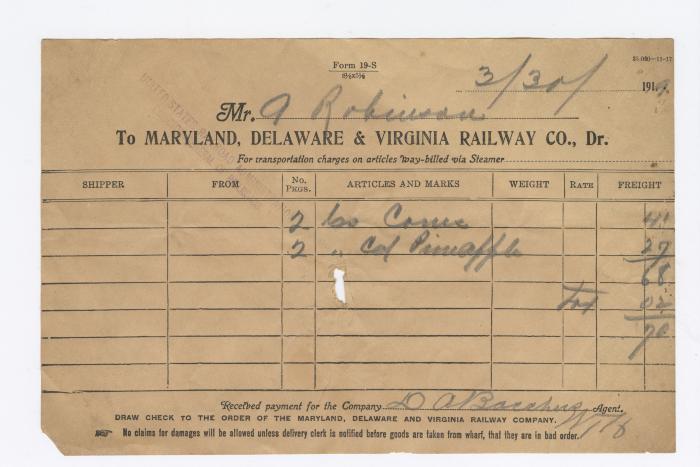 Form 19-S
8½x5½
25,000—11-17
3/30/ 1919
Mr. A Robinson
To MARYLAND, DELAWARE & VIRGINIA RAILWAY CO., Dr.
For transportation charges on articles way-billed via Steamer
SHIPPER FROM No. PKGS. ARTICLES AND MARKS WEIGHT RATE FREIGHT
2 Cas Corn 41
2 " Pineapple 27
68
Tax 02
70
Received payment for the Company D A Agent.
DRAW CHECK TO THE ORDER OF THE MARYLAND, DELAWARE AND VIRGINIA RAILWAY COMPANY.
No claims for damages will be allowed unless delivery clerk is notified before goods are taken from wharf, that they are in bad order.